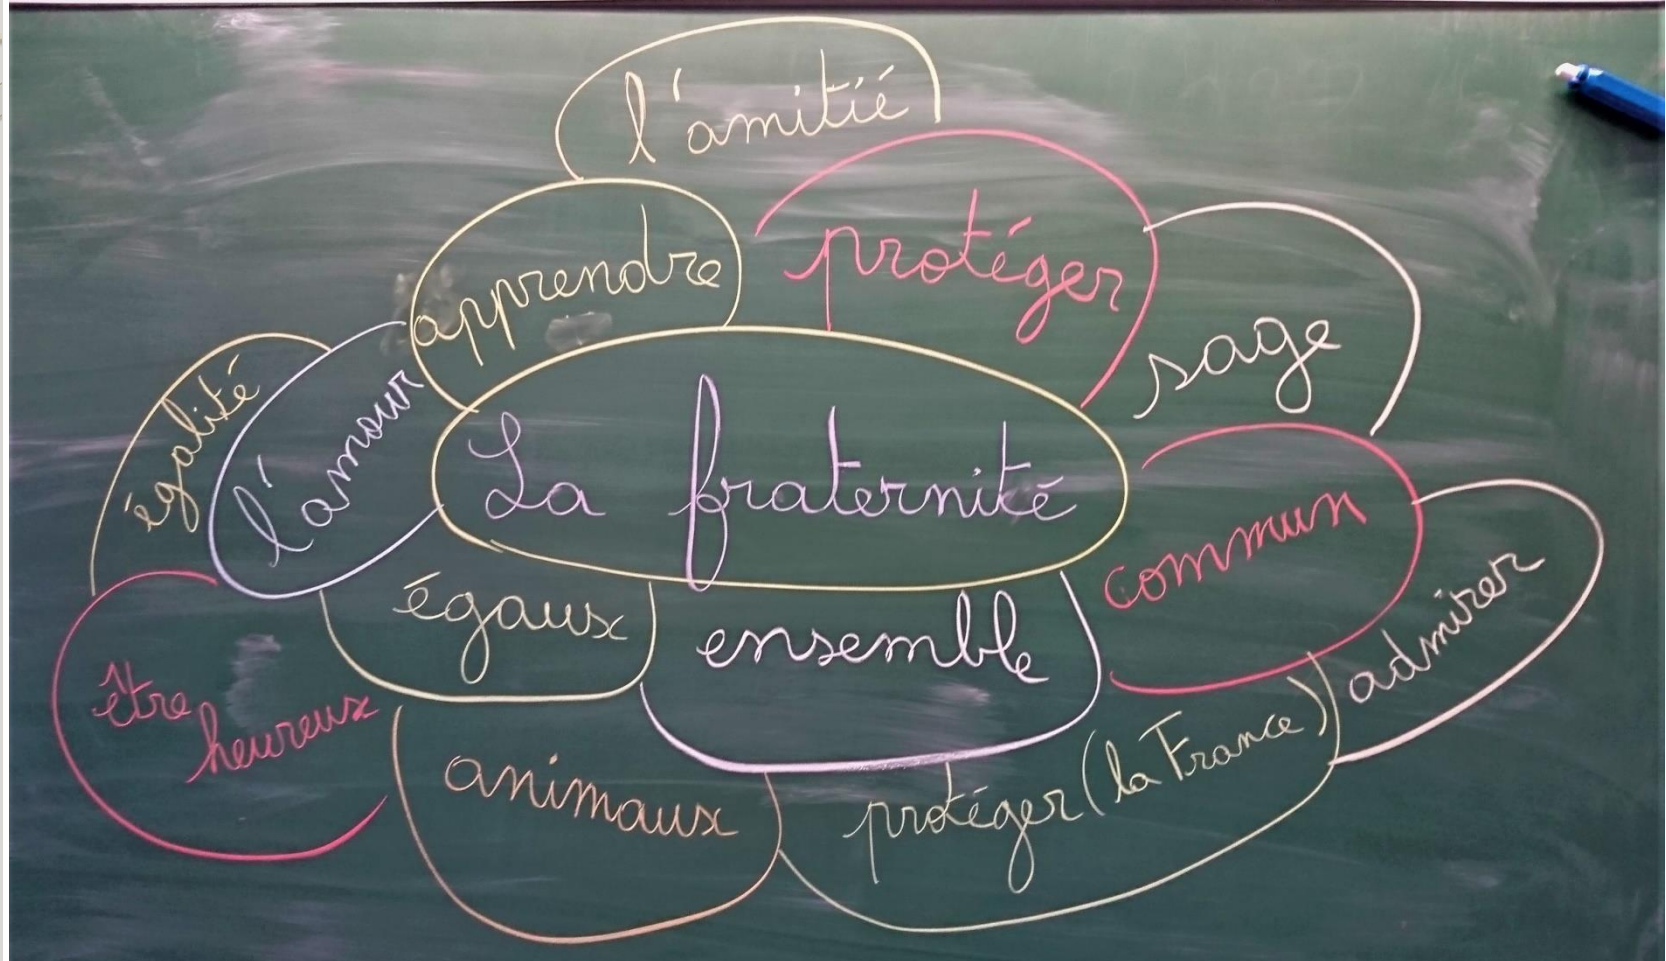 l'amitié
apprendre
protéger
sage
égalité
l'amour
La fraternité
commun
admirer
égaux
ensemble
être
heureux
animaux
protéger (la France)